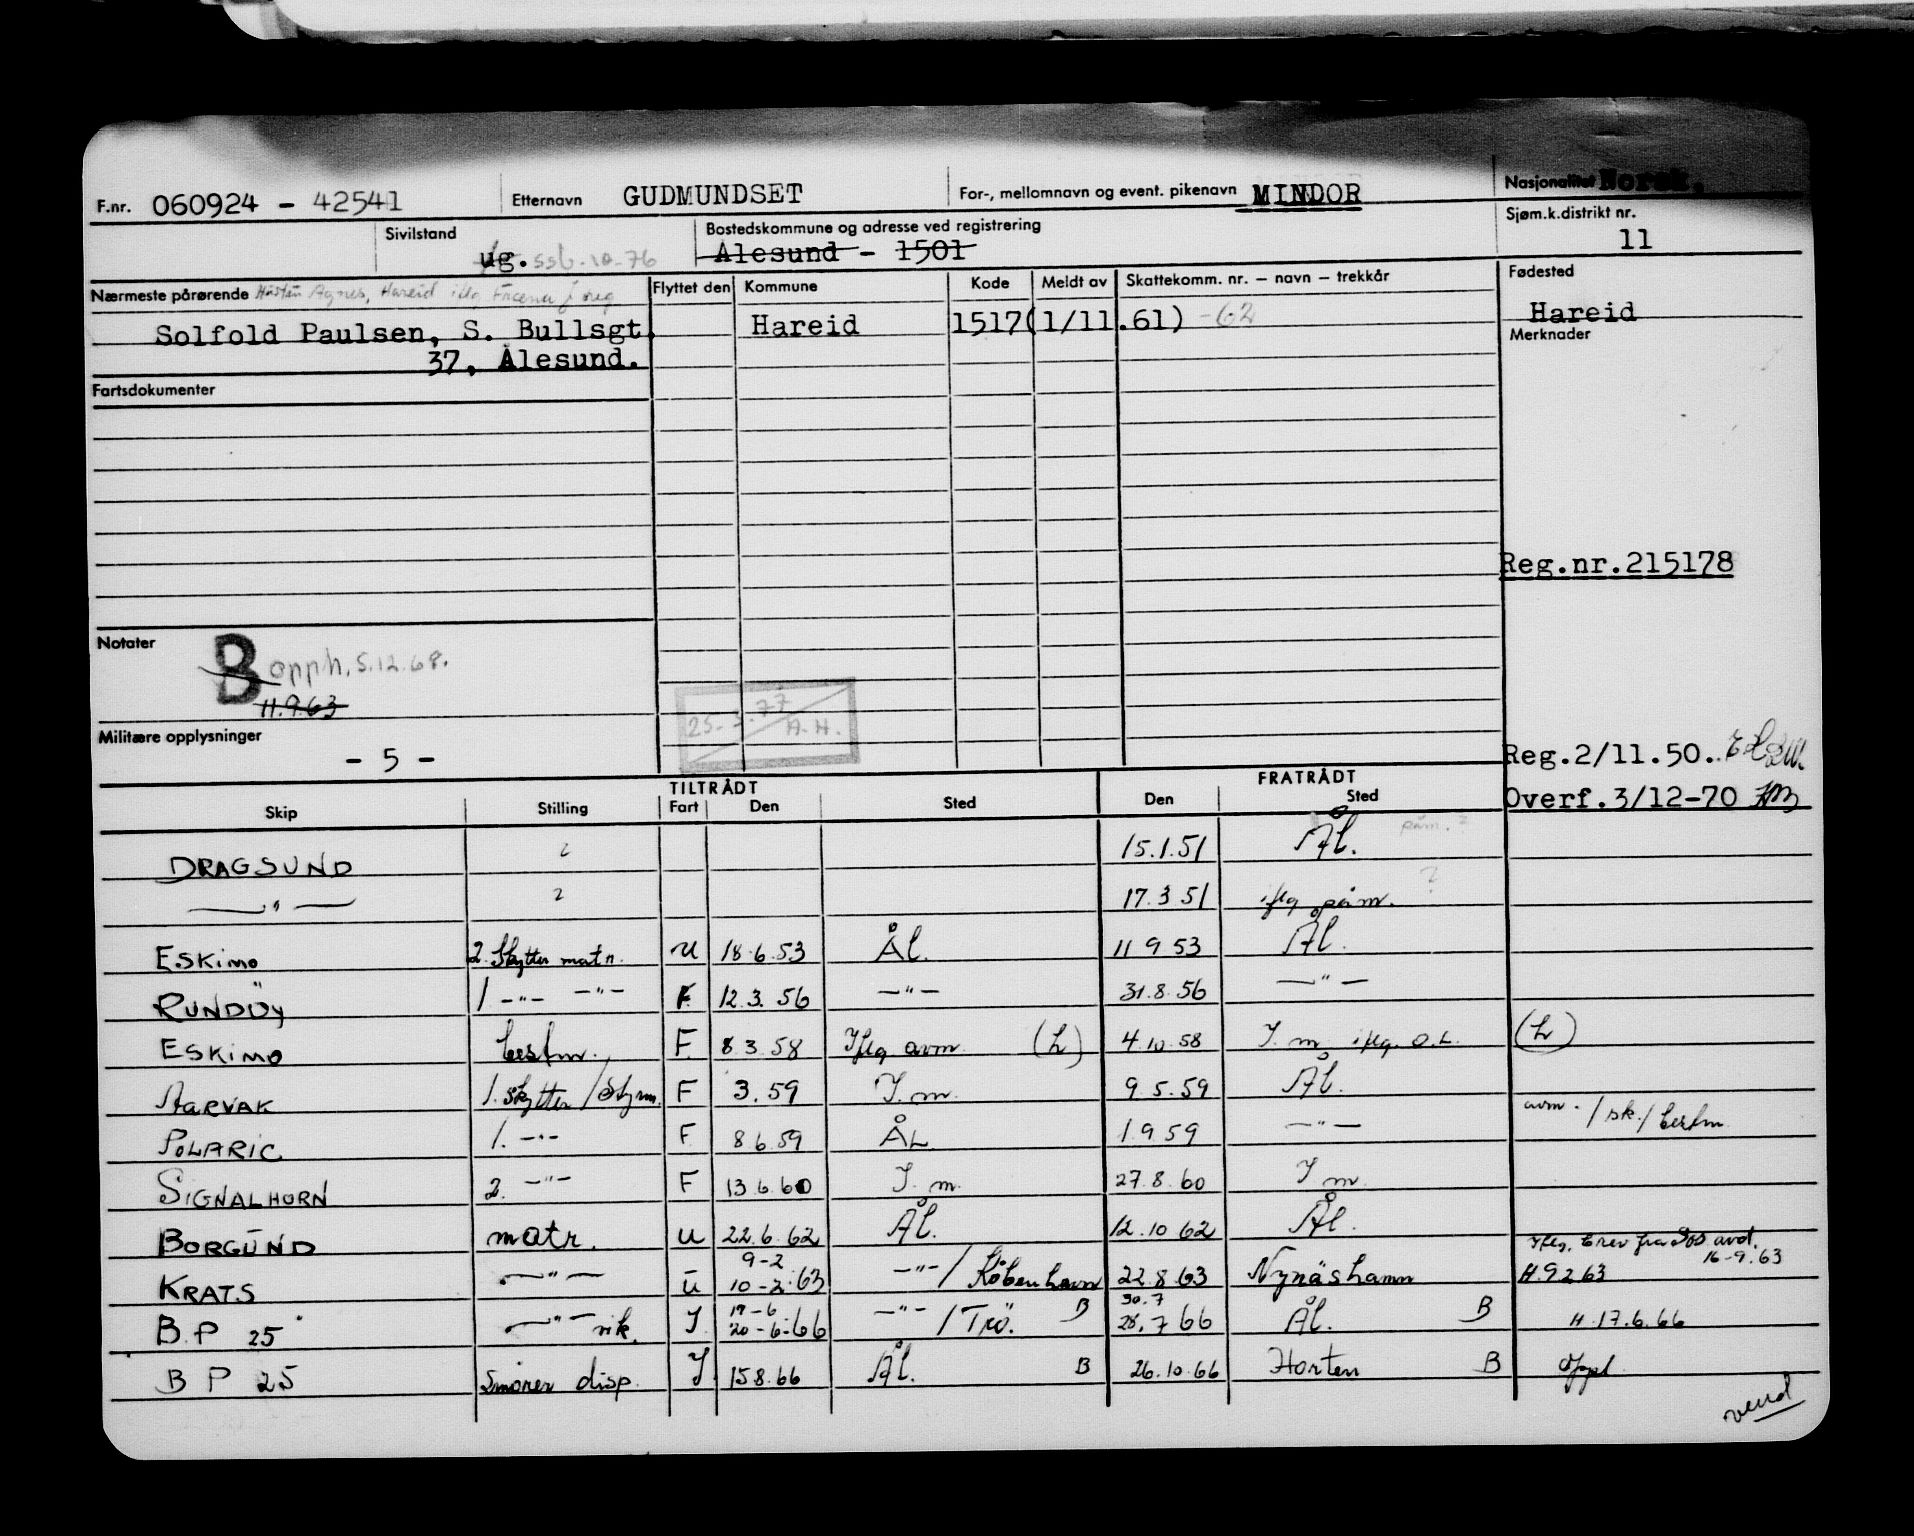 F.nr. 060924 - 42541 Etternavn GUDMUNDSET For-, mellomnavn og event. pikenavn MINDOR Nasjonalitet Norsk.
Sivilstand ug. ssb.10-76 Bostedskommune og adresse ved registrering Ålesund - 1501 Sjøm.k.distrikt nr. 11
Nærmeste pårørende Agnes, Hareid
Solfold Paulsen, S. Bullsgt.
37, Ålesund.
Flyttet den Kommune Kode Meldt av Skattekomm. nr. — navn — trekkår
Hareid 1517 (1/11.61) -62
Fødested
Hareid
Merknader
Fartsdokumenter
Reg.nr.215178
Notater
B opph. 5.12.68.
11.9.63
25-3.77
A.H.
Militære opplysninger
- 5 -
Reg.2/11.50.
Overf.3/12-70
TILTRÅDT FRATRÅDT
Skip Stilling Fart Den Sted Den Sted
DRAGSUND 2 15.1.51 Ål. påm. ?
—"— 2 17.3 51 iflg påm. ?
ESKIMO 2. Skytter matr. U 18.6.53 Ål. 11 9 53 Ål.
RUNDÖY 1. -"- -"- F. 12.3.56 —"— 31.8.56 —"—
ESKIMO bestm. F. 8 3.58 Iflg avm. (L) 4.10.58 I. m. iflg. O.L. (L)
AARVAK 1. Skytter / Styrm. F 3.59 I. m. 9.5.59 Ål.
POLARIC 1. -"- F. 8 6.59 ÅL. 1.9 59 —"— avm. / sk. / bestm.
SIGNALHORN 2. -"- F 13.6.60 I. m. 27.8.60 I m.
BORGUND matr. U 22.6.62 Ål. 12.10 62 Ål.
KRATS —"— U 9-2 10-2-63 -"- / Köbenhavn 22.8 63 Nynäshamn Iflg. brev fra Sos avd. 16-9.63 H.9 2 63
B.P 25 —"— vik. I. 19-6 20-6-66 -"- / Trö. B 30.7 28.7 66 Ål. B H. 17.6.66
B P 25 Smører disp. I 15 8.66 Ål. B 26.10.66 Horten B Oppl.
vend